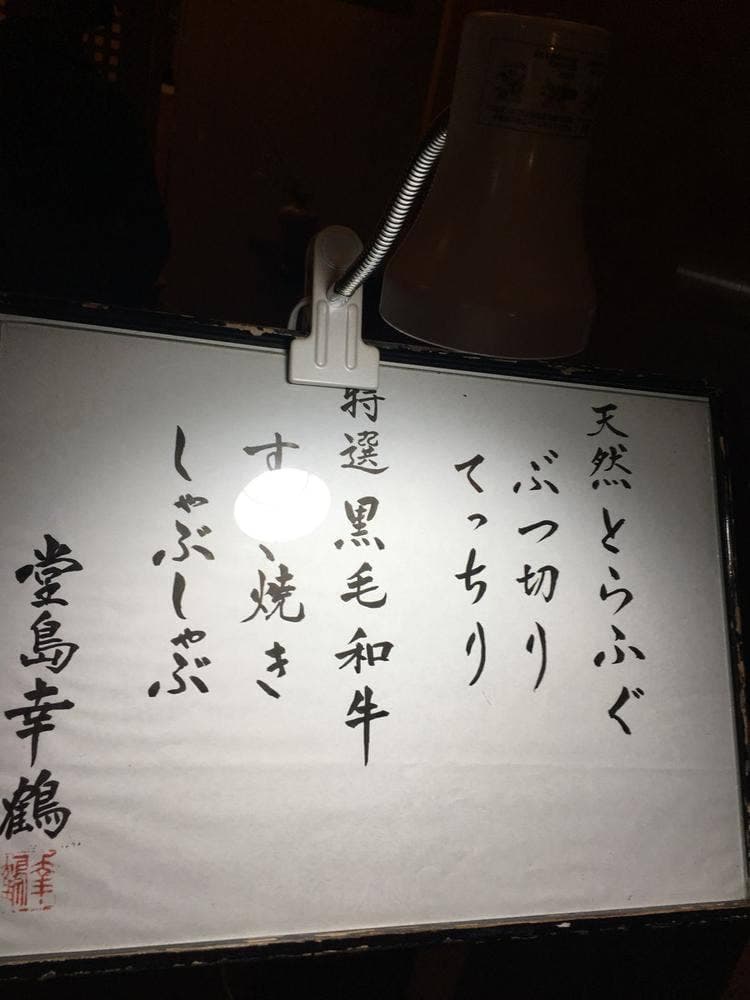 天然とらふぐ
ぶつ切り
てっちり
特選 黒毛和牛
す 焼き
しゃぶしゃぶ
堂島幸鶴